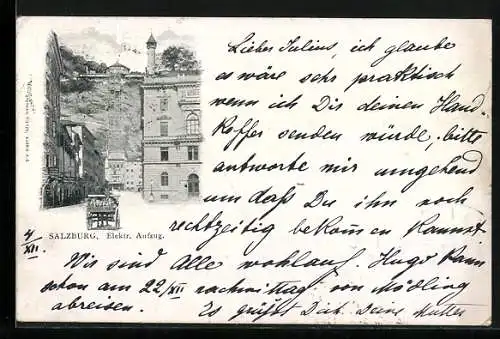 Lieber Julius, ich glaube
es wäre sehr praktisch
wenn ich Dir deinen Hand-
koffer senden würde, bitte
antworte mir umgehend
um daß Du ihn noch
rechtzeitig bekommen kannst.
SALZBURG, Elektr. Aufzug.
4/XII.
Wir sind Alle wohlauf. Hugo kann
schon am 22/XII nachmittag von Mödling
abreisen. Es grüßt Dich Deine Mutter